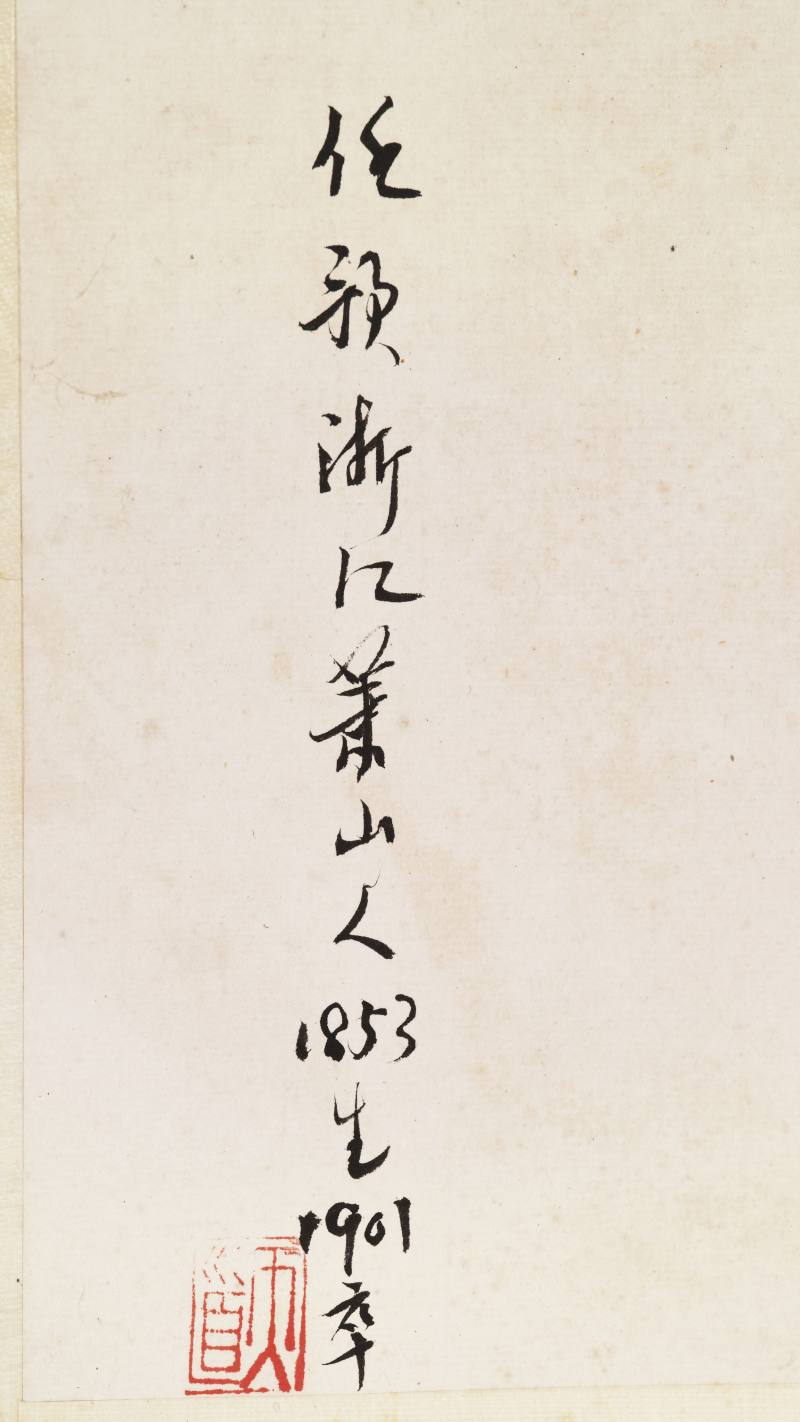 任預浙江蕭山人1853生1901卒